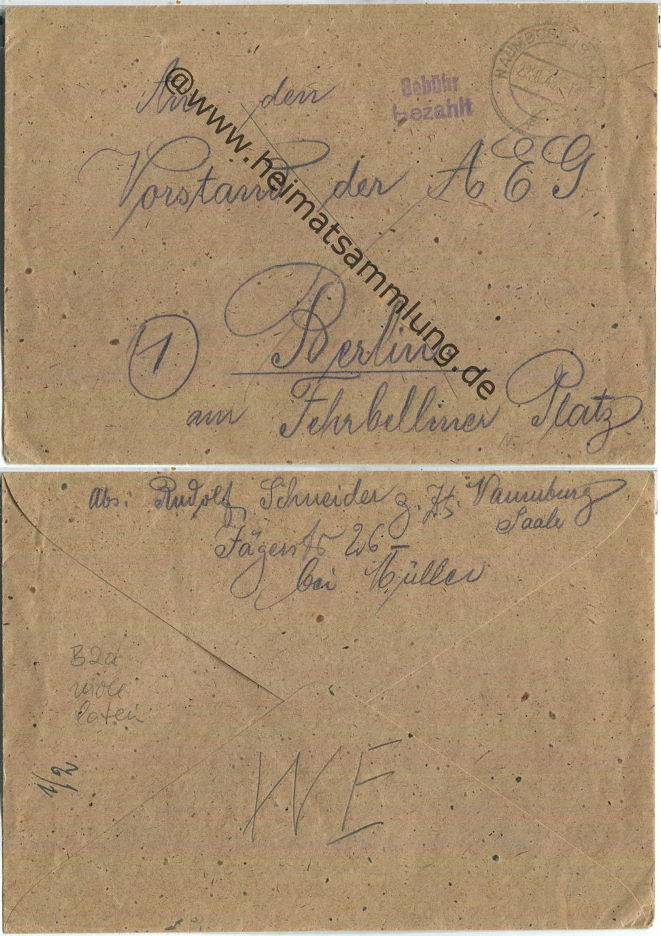 An den
Gebühr
bezahlt
NAUMBURG
Vorstand der AEG
@www.heimatsammlung.de
1
Berlin
am Fehrbelliner Platz
Abs: Rudolf Schneider z. Zt. Naumburg
Saale
Jägerstr 26
bei Müller
B2a
1/2
WE